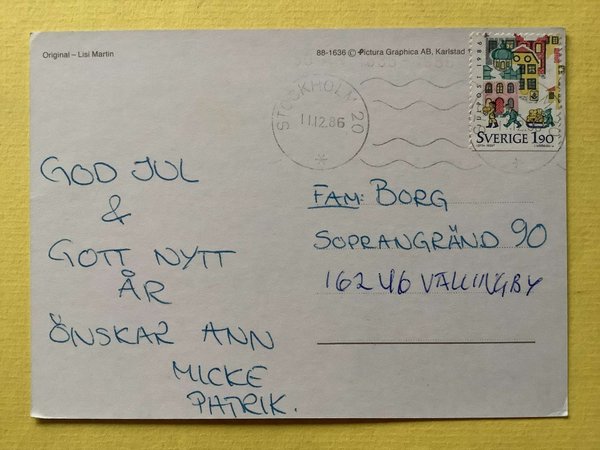 Original – Lisi Martin
88-1636 © Pictura Graphica AB, Karlstad
JULPOST 1986
SVERIGE 1.90
STOCKHOLM 20
11.12.86
*
GOD JUL
&
GOTT NYTT
ÅR
ÖNSKAR ANN
MICKE
PATRIK.
FAM: BORG
SOPRANGRÄND 90
162 46 VÄLLINGBY